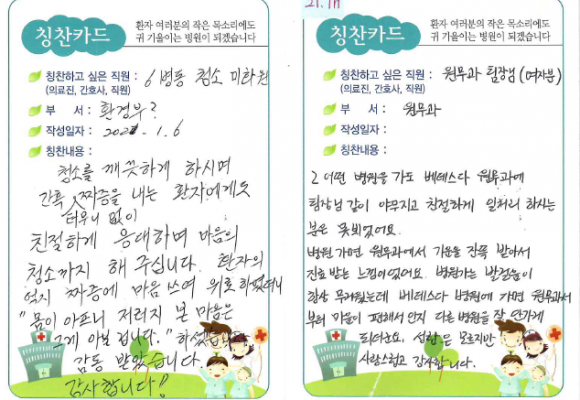 칭찬카드
환자 여러분의 작은 목소리에도
귀 기울이는 병원이 되겠습니다
칭찬하고 싶은 직원 : 6병동 청소 미화원
(의료진, 간호사, 직원)
부 서 : 환경부?
작성일자 : 2021. 1. 6
칭찬내용 :
청소를 깨끗하게 하시며
간혹 짜증을 내는 환자에게도
터우니 없이
친절하게 응대하며 마음의
청소까지 해 주십니다. 환자의
억지 짜증에 마음 쓰여 위로 하였더니
"몸이 아프니 저러지 본 마음은
그게 아닐 겁니다." 하셨습니다
감동 받았습니다
감사합니다!
21.1月
칭찬카드
환자 여러분의 작은 목소리에도
귀 기울이는 병원이 되겠습니다
칭찬하고 싶은 직원 : 원무과 팀장님 (여자분)
(의료진, 간호사, 직원)
부 서 : 원무과
작성일자 :
칭찬내용 :
그 어떤 병원을 가도 베데스다 원무과에
팀장님 같이 야무지고 친절하게 일처리 하시는
분은 못봤었어요.
병원 가면 원무과에서 기운을 잔뜩 받아서
진료 받는 느낌이였어요. 병원가는 발걸음이
항상 무거웠는데 베데스다 병원에 가면 원무과서
부터 마음이 편해서 인지 다른 병원을 잘 안가게
되더군요. 성함은 모르지만
사랑스럽고 감사합니다.